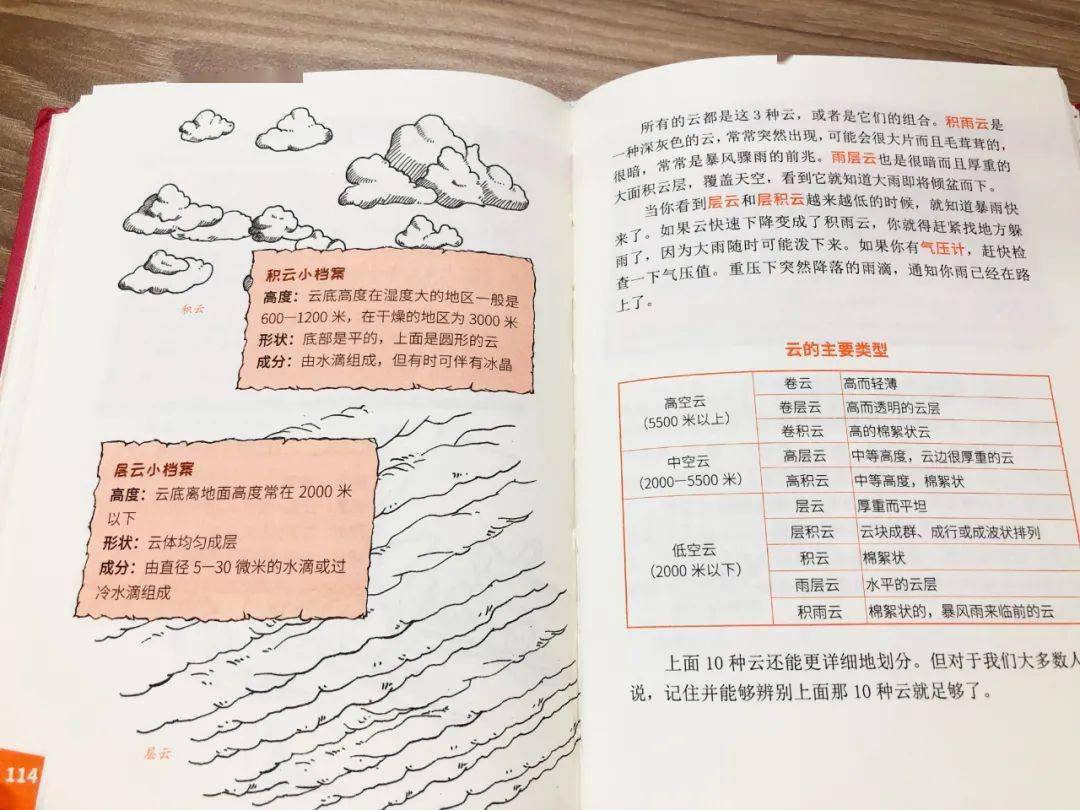 积云
积云小档案
高度：云底高度在湿度大的地区一般是
600—1200 米，在干燥的地区为 3000 米
形状：底部是平的，上面是圆形的云
成分：由水滴组成，但有时可伴有冰晶
层云小档案
高度：云底离地面高度常在 2000 米
以下
形状：云体均匀成层
成分：由直径 5—30 微米的水滴或过
冷水滴组成
层云
114
所有的云都是这 3 种云，或者是它们的组合。积雨云是
一种深灰色的云，常常突然出现，可能会很大片而且毛茸茸的，
很暗，常常是暴风骤雨的前兆。雨层云也是很暗而且厚重的
大面积云层，覆盖天空，看到它就知道大雨即将倾盆而下。
当你看到层云和层积云越来越低的时候，就知道暴雨快
来了。如果云快速下降变成了积雨云，你就得赶紧找地方躲
雨了，因为大雨随时可能泼下来。如果你有气压计，赶快检
查一下气压值。重压下突然降落的雨滴，通知你雨已经在路
上了。
云的主要类型
高空云
（5500 米以上）
卷云 高而轻薄
卷层云 高而透明的云层
卷积云 高的棉絮状云
中空云
（2000—5500 米）
高层云 中等高度，云边很厚重的云
高积云 中等高度，棉絮状
低空云
（2000 米以下）
层云 厚重而平坦
层积云 云块成群、成行或成波状排列
积云 棉絮状
雨层云 水平的云层
积雨云 棉絮状的，暴风雨来临前的云
上面 10 种云还能更详细地划分。但对于我们大多数人
说，记住并能够辨别上面那 10 种云就足够了。